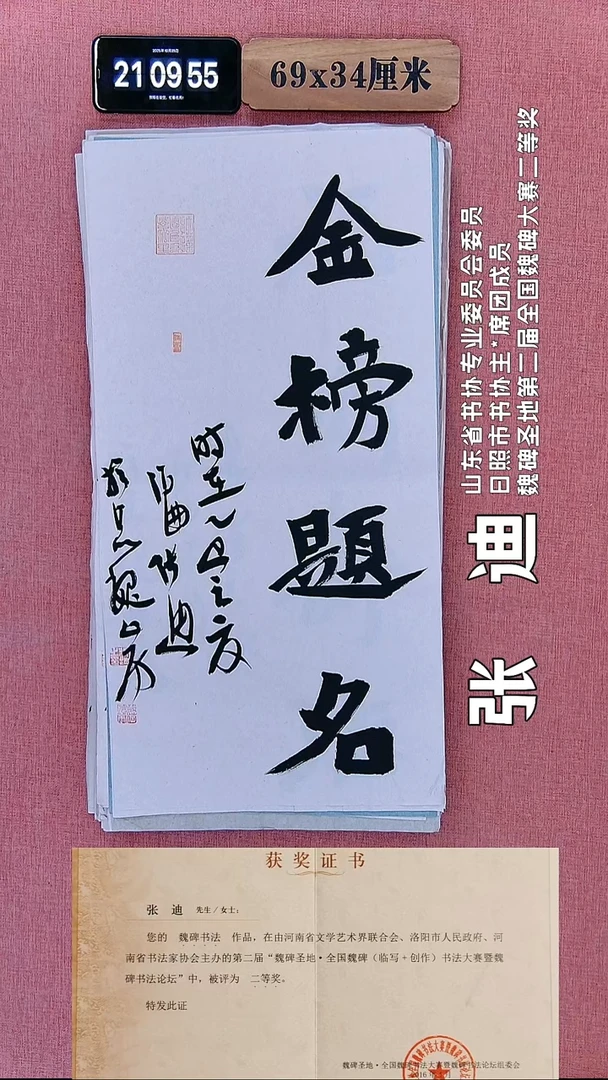 2025年10月25日
21 09 55
69x34厘米
金榜題名
山东省书协专业委员会委员
日照市书协主*席团成员
魏碑圣地第二届全国魏碑大赛二等奖
张 迪
获奖证书
张 迪 先生/女士:
您的 魏碑书法 作品,在由河南省文学艺术界联合会、洛阳市人民政府、河
南省书法家协会主办的第二届“魏碑圣地·全国魏碑(临写+创作)书法大赛暨魏
碑书法论坛”中,被评为 二等奖。
特发此证
魏碑圣地·全国魏碑书法大赛暨魏碑书法论坛组委会